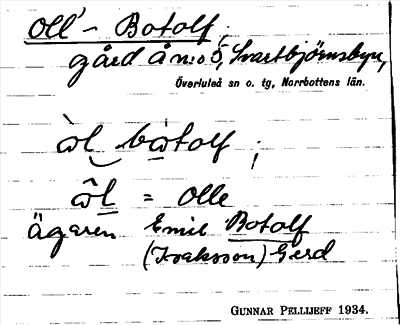 Oll' - Botolf;
gård å N:o 5, Svartbjörnsbyn,
Överluleå sn o. tg, Norrbottens län.
òl bòtolf;
ôl = Olle
ägaren Emil Botolf
(Isaksson) Gerd
GUNNAR PELLIJEFF 1934.